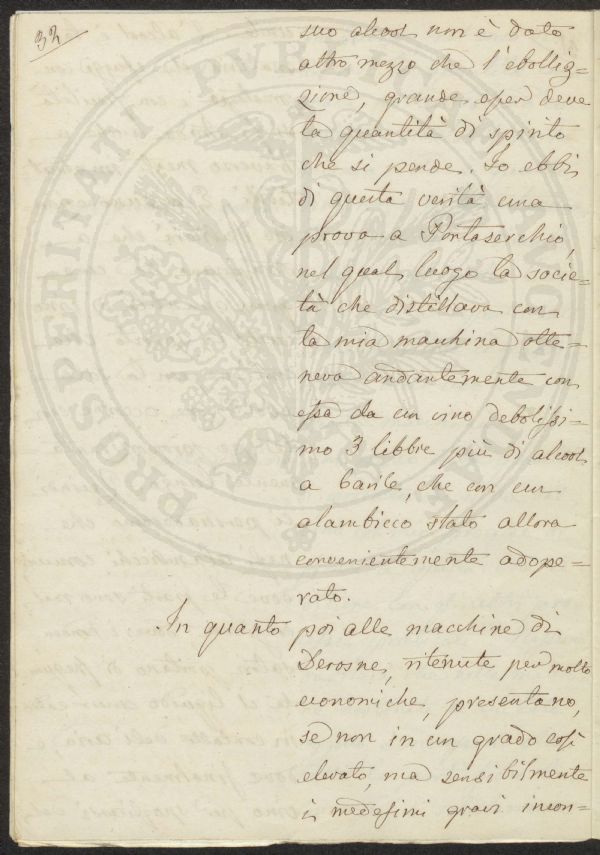 32
suo alcool non è dato
altro mezzo che l'ebolliz=
zione, grande esser deve
la quantità di spirito
che si perde. Io ebbi
di questa verità una
prova a Pontaserchio,
nel qual luogo la socie=
tà che distillava con
la mia macchina otte=
neva andantemente con
essa da un vino debolissi=
mo 3 libbre più di alcool
a barile, che con un
alambicco stato allora
convenientemente adope=
rato.
In quanto poi alle macchine di
Derosne, ritenute per molto
economiche, presentano,
se non in un grado così
elevato, ma sensibilmente
i medesimi gravi incon=
PROSPERITATI PUBLICAE